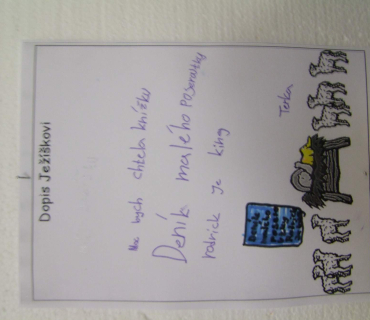 Dopis Ježíškovi
Moc bych chtěla knížku
Deník malého poseroutky
rodrick je king
Terka